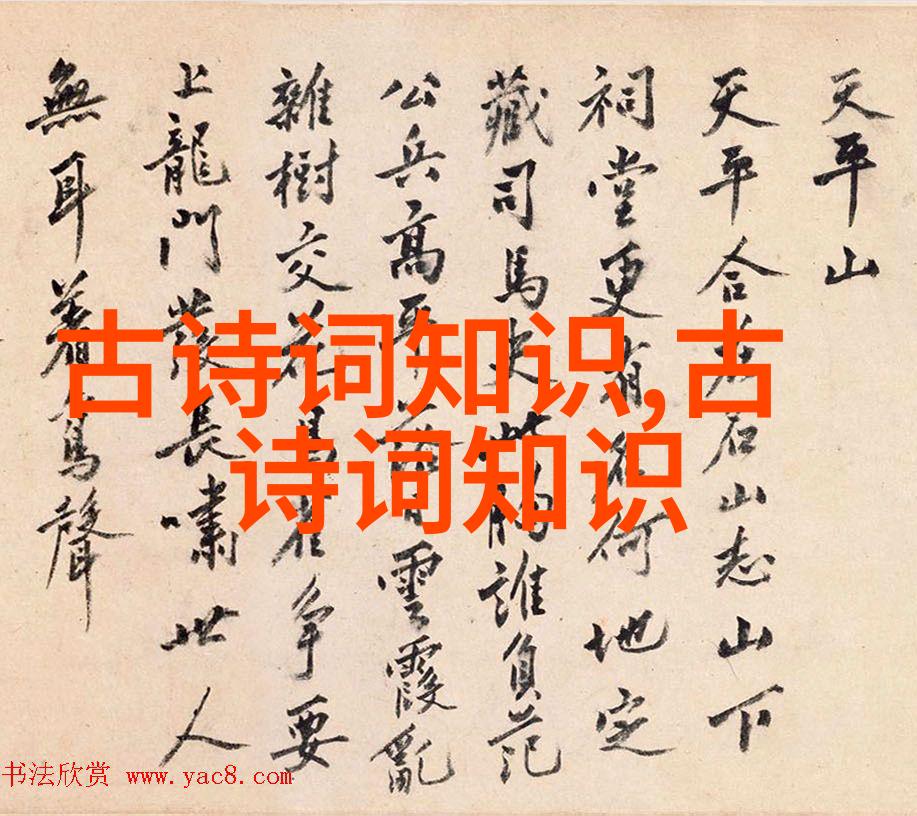 天平山
天平合石山志山下
祠堂更有何地定
藏司馬史此誰負范
公兵高平雲霞亂
雜樹交花雀爭要
上龍門發長嘯世人
無耳著聲
古诗词知识,古
诗词知识
书法欣赏 www.yac8.com